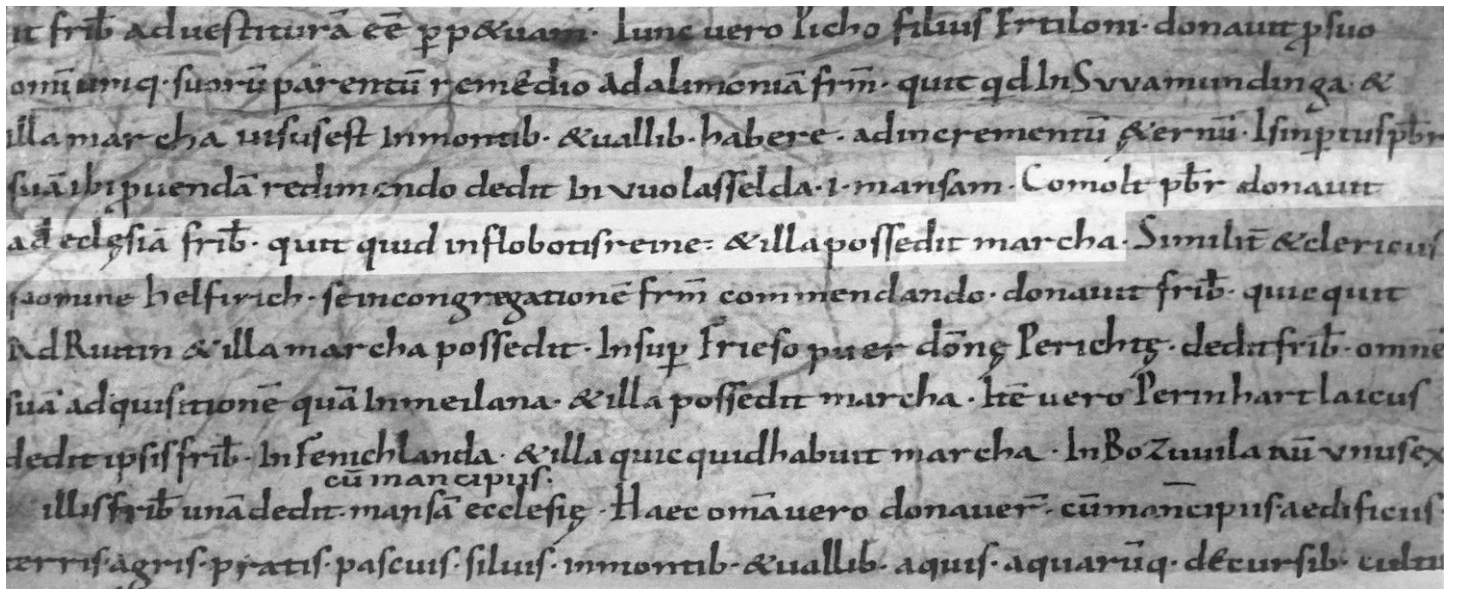 it frib̄ ad uestiturā eē ꝑp&uam· Tunc uero Picho filius Ertiloni· donauit ꝑ suo
omīumq· suorū parentū remedio ad alimoniā frm̄· quit qd In Svvamundinga· &
illa marcha uisus est In montib· & uallib· habere· ad incrementū &ernū· Isinꝑtus pb̄r
suā ibi ꝓuendā redimendo dedit In vuolasselda· i· mansam· Comolt pb̄r donauit
ad eclęsiā frib̄· quit quid in flobotisreine· & illa possedit marcha· Similit̄ & clericus
nomine helfirich· se in congregationē frm̄ commendando· donauit frib̄· quicquit
Ad Rutin & illa marcha possedit· Insuꝑ Frieso puer dōnę Perichtę· dedit frib̄· omnē
suā adquisitionē quā In meilana· & illa possedit marcha· Itē uero Perinhart laicus
dedit ipsis frib̄· In fenichlanda· & illa quicquid habuit marcha· In Bozuuila aū vnus ex
cū mancipiis·
illis frib̄ unā dedit mansā ecclesię· Haec om̄a uero donauer̄· cū mancipiis· aedificiis·
terris· agris· pratis· pascuis· siluis· in montib· & uallib· aquis· aquarūq· decursib· cultu